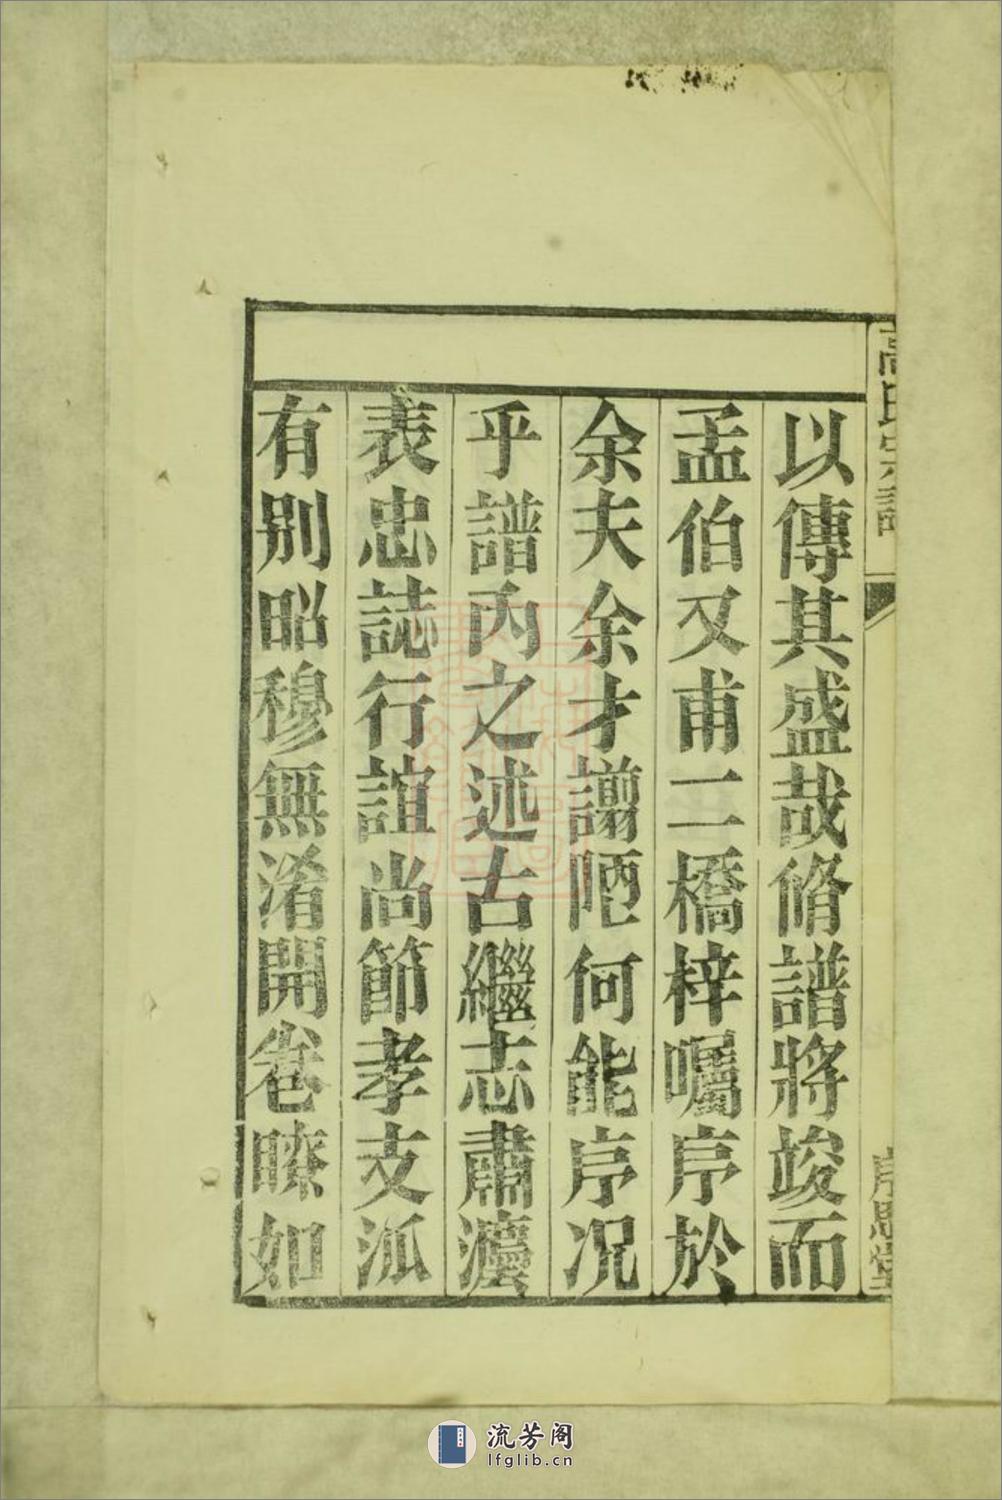 高氏宗譜
以傳其盛哉脩譜將竣而
孟伯又甫二橋梓囑序於
余夫余才譾陋何能序况
乎譜内之述古繼志肅
表忠誌行誼尚節孝支派
有别昭穆無淆開卷瞭如
流芳阁
lfglib.cn